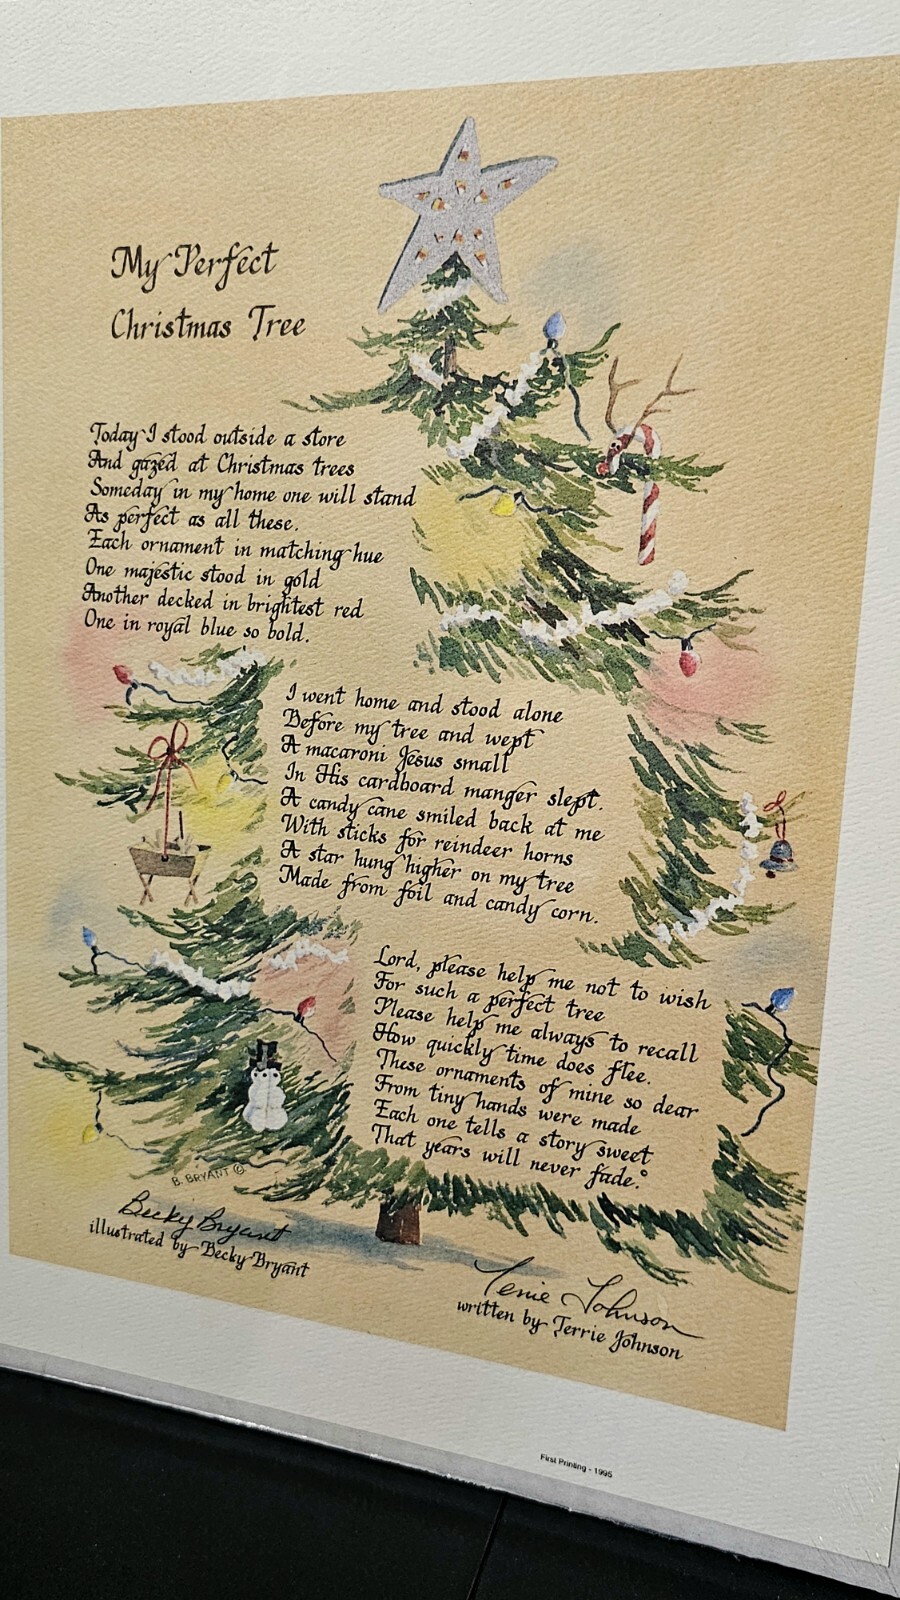 My Perfect
Christmas Tree
Today I stood outside a store
And gazed at Christmas trees
Someday in my home one will stand
As perfect as all these.
Each ornament in matching hue
One majestic stood in gold
Another decked in brightest red
One in royal blue so bold.
I went home and stood alone
Before my tree and wept
A macaroni Jesus small
In His cardboard manger slept.
A candy cane smiled back at me
With sticks for reindeer horns
A star hung higher on my tree
Made from foil and candy corn.
Lord, please help me not to wish
For such a perfect tree
Please help me always to recall
How quickly time does flee.
These ornaments of mine so dear
From tiny hands were made
Each one tells a story sweet
That years will never fade.
B. BRYANT ©
Becky Bryant
illustrated by Becky Bryant
Terrie Johnson
written by Terrie Johnson
First Printing - 1995